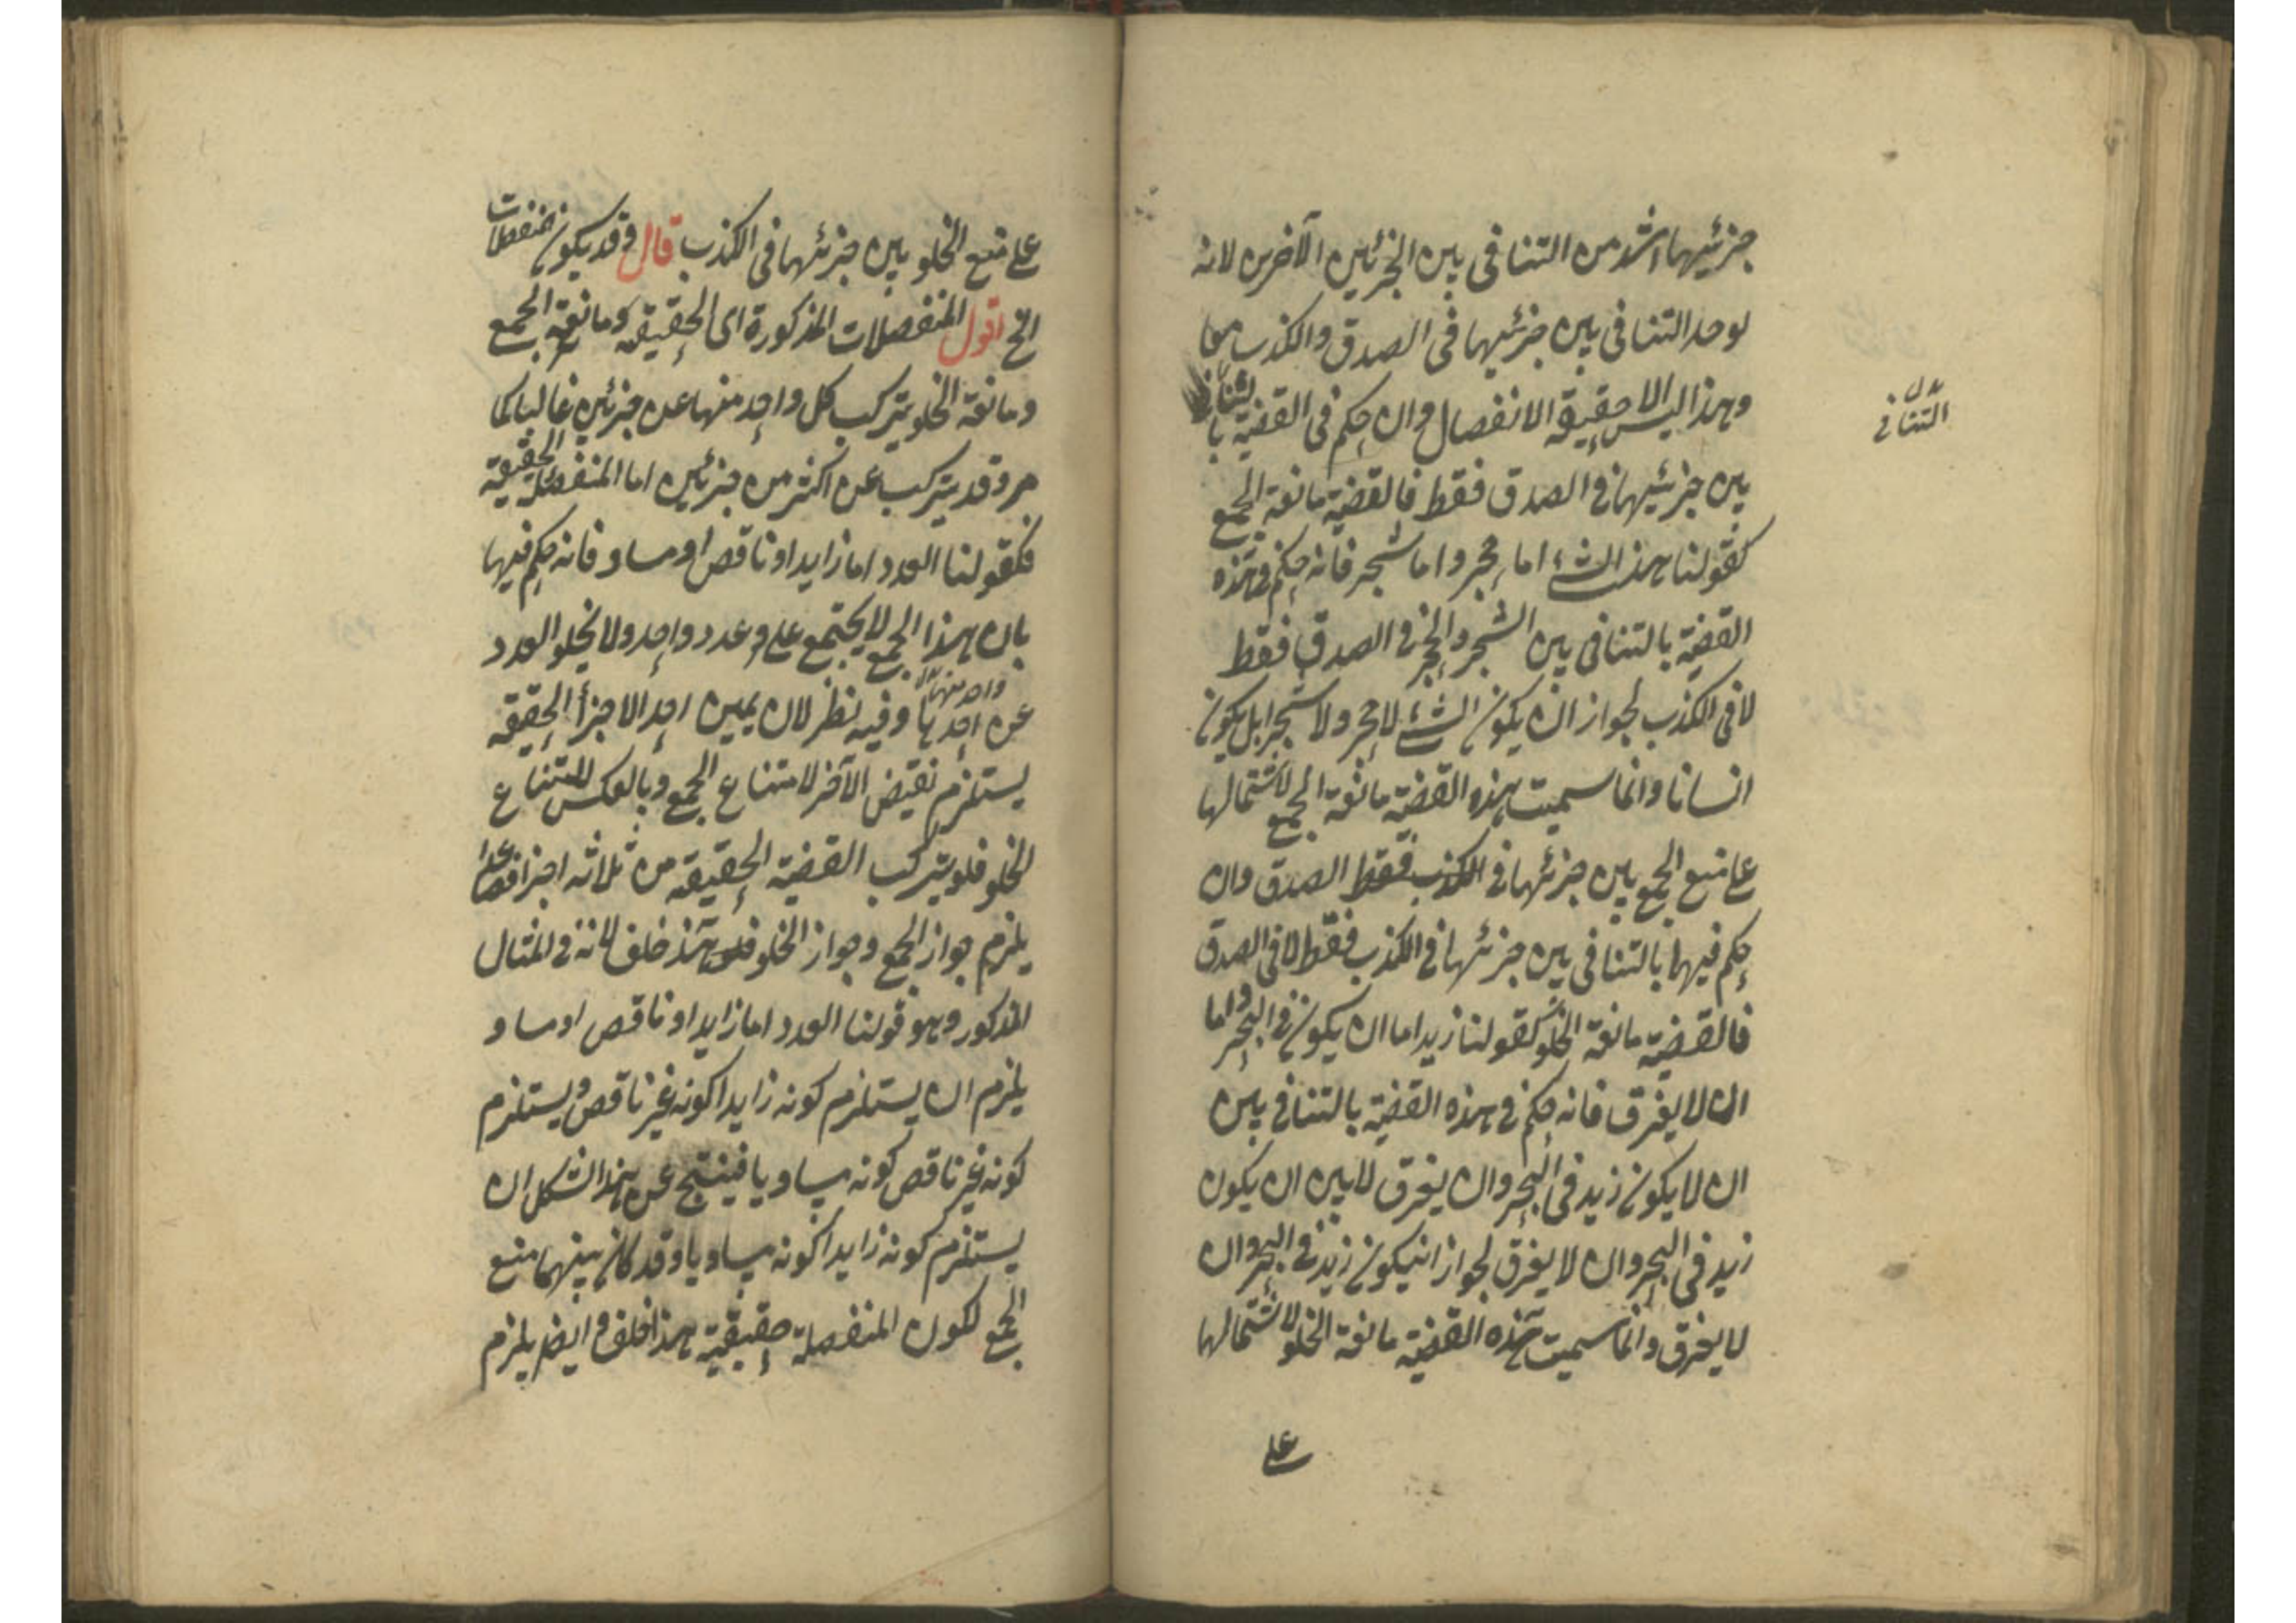 جزئيها اشد من التنافى بين الجزئين الآخرين لانه
لوحد التنافى بين جزئيها فى الصدق والكذب معا
وهذا ليس الا حقيقة الانفصال وان حكم فى القضية بالتنافى
بدل
التنافى
بين جزئيها فى الصدق فقط فالقضية مانعة الجمع
كقولنا هذا الشئ اما حجر واما شجر فانه حكم فى هذه
القضية بالتنافى بين الشجر والحجر فى الصدق فقط
لا فى الكذب لجواز ان يكون الشئ لا حجر ولا شجرا بل يكون
انسانا وانما سميت هذه القضية مانعة الجمع لاشتمالها
على منع الجمع بين جزئها فى الكذب فقط الصدق وان
حكم فيها بالتنافى بين جزئها فى الكذب فقط لا فى الصدق
فالقضية مانعة الخلو كقولنا زيد اما ان يكون فى البحر واما
ان لا يغرق فانه حكم فى هذه القضية بالتنافى بين
ان لا يكون زيد فى البحر وان يغرق لا بين ان يكون
زيد فى البحر وان لا يغرق لجواز انيكون زيد فى البحر وان
لا يغرق وانما سميت هذه القضية مانعة الخلو لاشتمالها
على
على منع الخلو بين جزئها فى الكذب قال وقد يكون منفصلات
الخ اقول المنفصلات المذكورة اى الحقيقة ومانعة الجمع
ومانعة الخلو يتركب كل واحد منها عن جزئين غالبا كما
مر وقد يتركب عن اكثر من جزئين اما المنفصلة الحقيقية
فكقولنا العدد اما زايد او ناقص او مساو فانه حكم فيها
بان هذا الجمع لا يجتمع على عدد واحد ولا يخلو العدد
عن احدها وفيه نظر لان يمين احد الاجزأ الحقيقة
واحد منها
يستلزم نقيض الآخر لامتناع الجمع وبالعكس لامتناع
الخلو فلو يتركب القضية الحقيقة من ثلاثه اجزا فصاعدا
يلزم جواز الجمع وجواز الخلو هذا خلف لانه فى المثال
المذكور وهو قولنا العدد اما زايد او ناقص او مساو
يلزم ان يستلزم كونه زايدا كونه غير ناقص ويستلزم
كونه غير ناقص كونه مساويا فينتج عن هذا الشكل ان
يستلزم كونه زايدا كونه مساويا وقد كان بينهما منع
الجمع لكون المنفصلة حقيقية هذا خلف وايضا يلزم